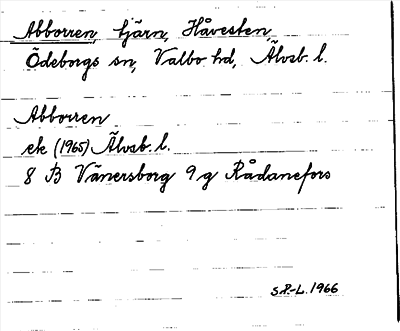 Abborren, tjärn, Håvesten,
Ödeborgs sn, Valbo hd, Älvsb. l.
Abborren
ek (1965) Älvsb. l.
8 B Vänersborg 9 g Rådanefors
S.P.-L. 1966